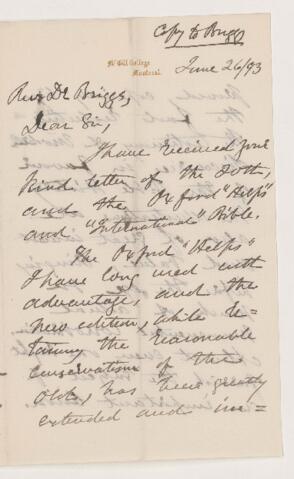 Copy to Briggs
McGill College
Montreal.
June 26/93
Rev Dr Briggs,
Dear Sir,
I have received your
kind letter of the 20th,
and the Oxford "Helps"
and "International" Bible.
The Oxford "Helps"
I have long used with
advantage, and the
new edition, while re=
taining the reasonable
conservatism of the
old, has been greatly
extended and im=